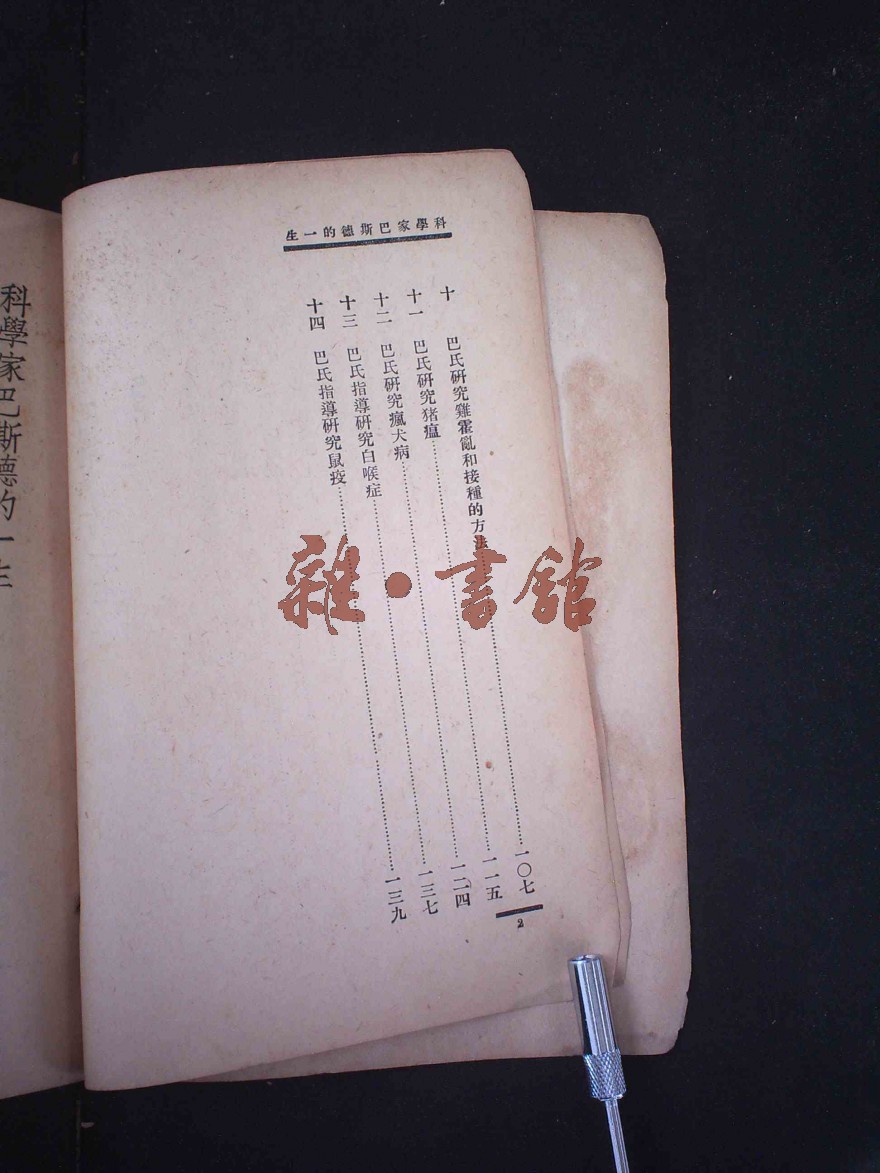 科學家巴斯德的一生
十 巴氏研究雞霍亂和接種的方法……一〇七
十一 巴氏研究猪瘟……一一五
十二 巴氏研究瘋犬病……一二四
十三 巴氏指導研究白喉症……一三七
十四 巴氏指導研究鼠疫……一三九
2
科學家巴斯德的一生
雜·書館